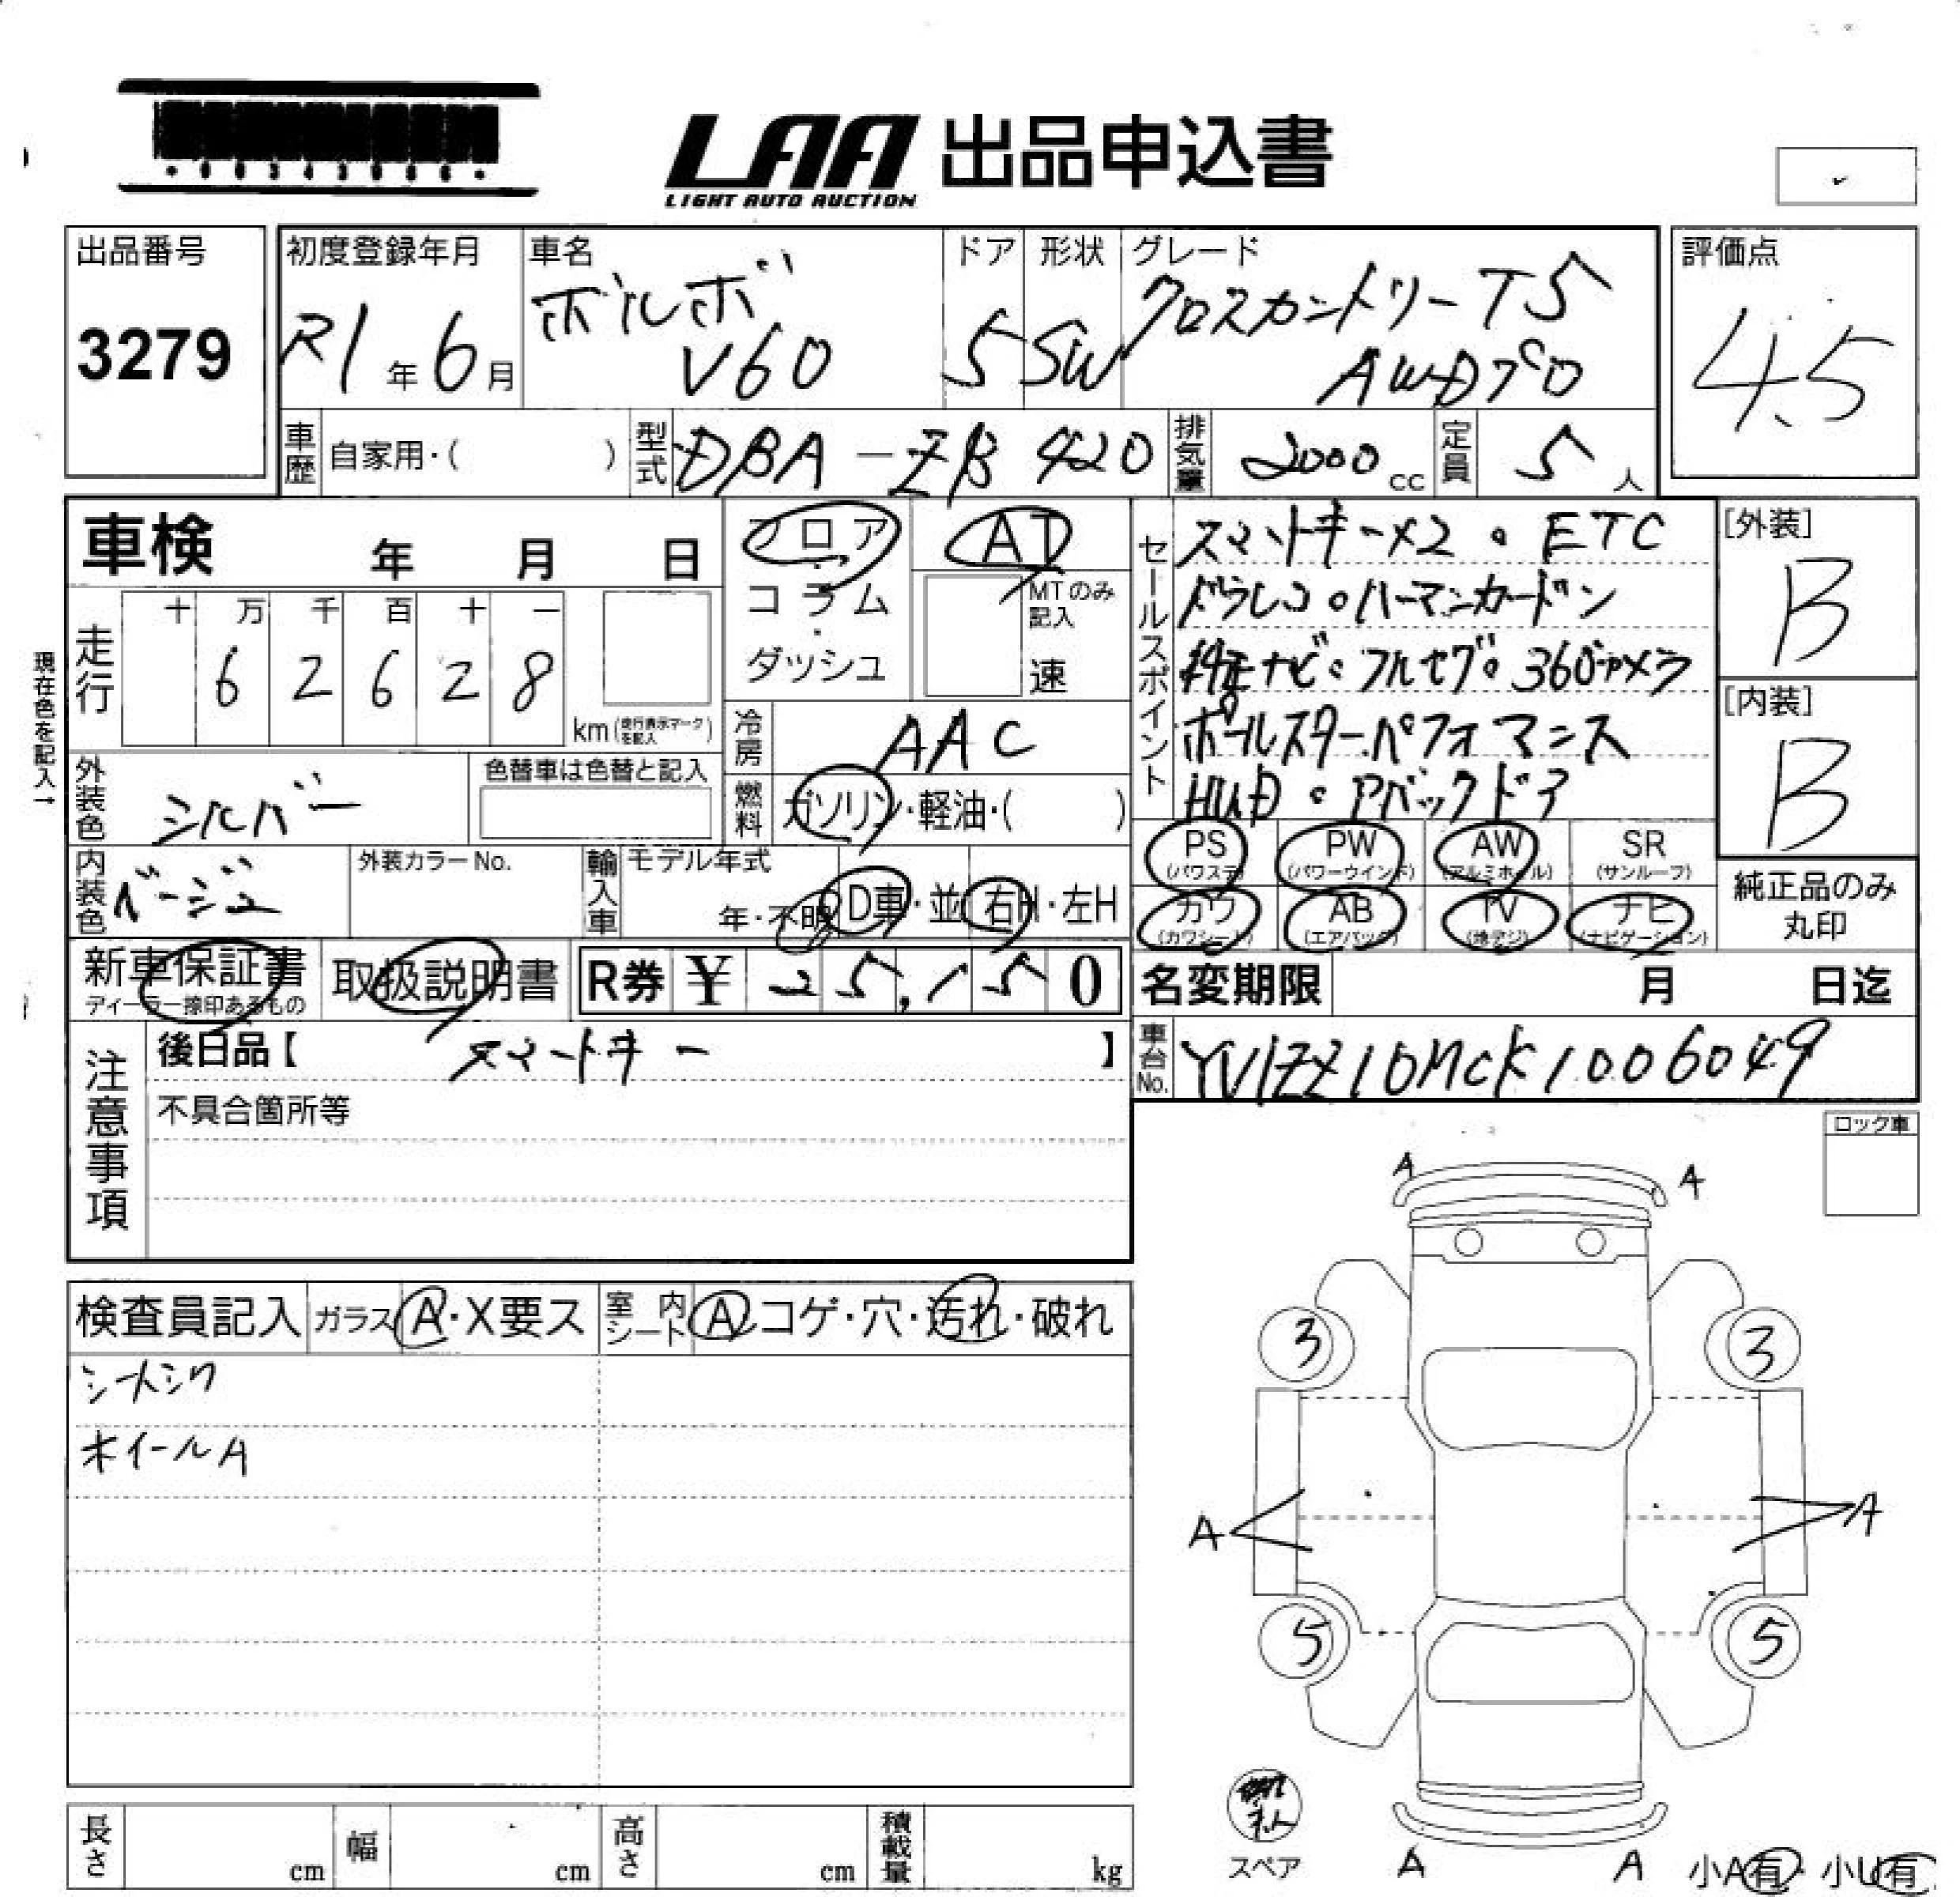 LAA 出品申込書
LIGHT AUTO AUCTION
出品番号
3279
初度登録年月
R1年6月
車名
ボルボ
V60
ドア
5
形状
SW
グレード
クロスカントリーT5
AWDプロ
評価点
4.5
車歴 自家用・( )
型式 DBA-ZB420
排気量 2000cc
定員 5人
車検 年 月 日
フロア
コラム
ダッシュ
AT
MTのみ記入
速
走行
十 万 千 百 十 一
6 2 6 2 8
km(走行表示マークを記入)
現在色を記入→
冷房 AAC
燃料 ガソリン・軽油・( )
外装色 シルバー
色替車は色替と記入
内装色 ベージュ
外装カラーNo.
輸入車
モデル年式
年・不明
D車・並
右H・左H
セールスポイント
スマートキー×2。ETC
ドラレコ。ハーマンカードン
純正ナビ。フルセグ。360°カメラ
ポールスターパフォマンス
HUD。Pバックドア
[外装]
B
[内装]
B
PS (パワステ)
PW (パワーウインド)
AW (アルミホイル)
SR (サンルーフ)
カワ (カワシート)
AB (エアバッグ)
TV (地デジ)
ナビ (ナビゲーション)
純正品のみ
丸印
新車保証書
ディーラー捺印あるもの
取扱説明書
R券 ¥ 25,150
名変期限 月 日迄
車台No. YV1ZZ10MCK1006049
注意事項
後日品【 スマートキー 】
不具合箇所等
ロック車
検査員記入
ガラス A・X要ス
室内シート A コゲ・穴・汚れ・破れ
シートシワ
ホイールA
A A
3 3
A A
5 5
スペア
A A
小A有・小U有
長さ cm
幅 cm
高さ cm
積載量 kg